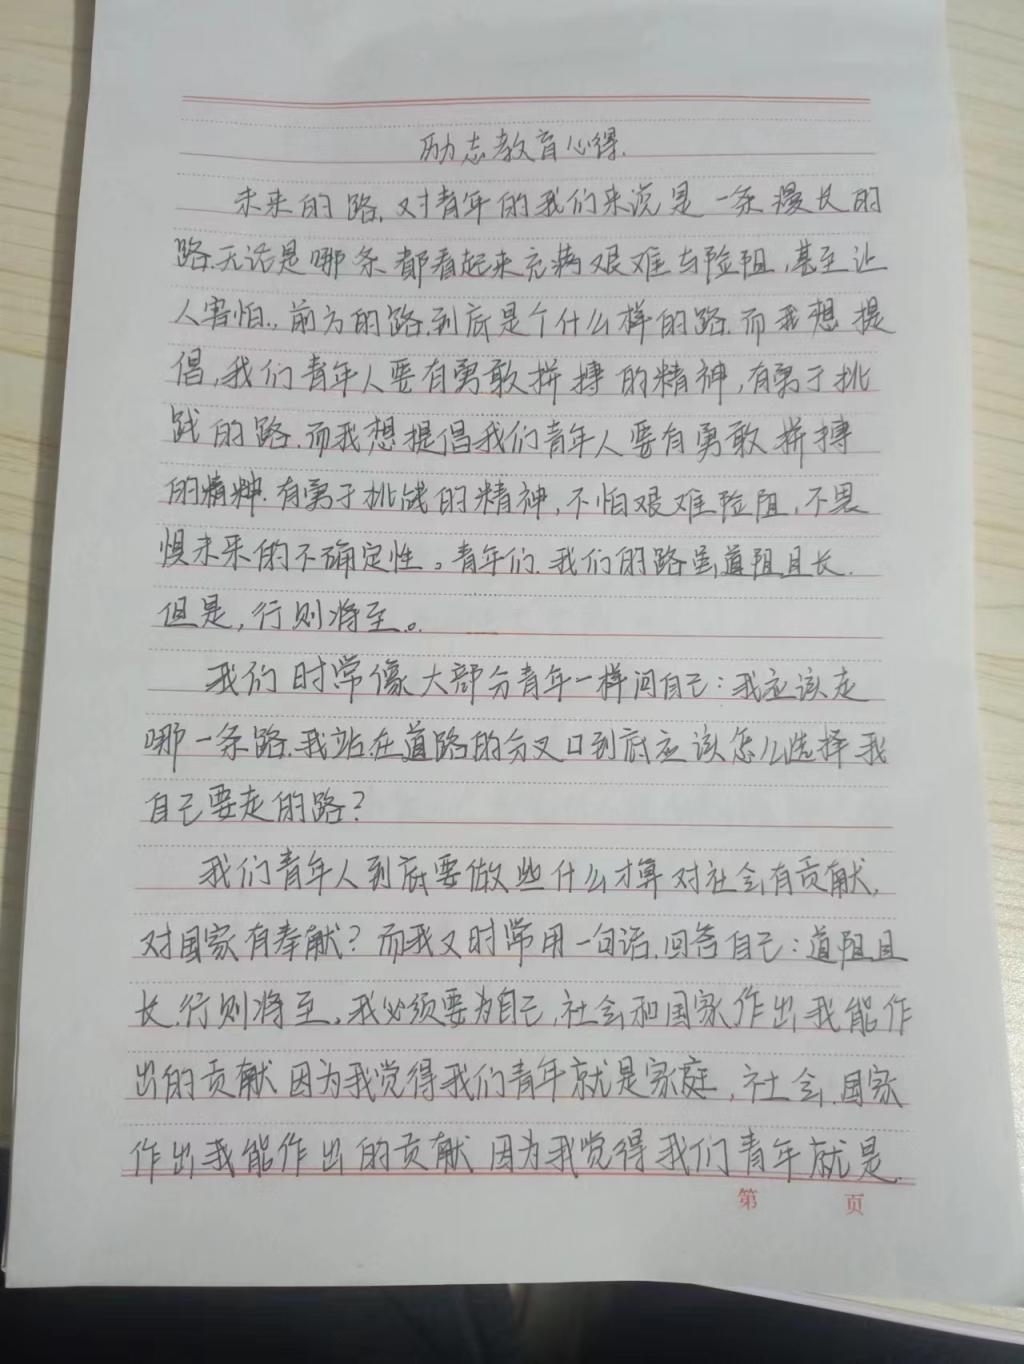 励志教育心得.
未来的路,对青年的我们来说是一条漫长的
路,无话是哪条都看起来充满艰难与险阻,甚至让
人害怕.,前方的路,到底是个什么样的路,而我想提
倡,我们青年人要有勇敢拼搏的精神,有勇于挑
战的路.而我想提倡我们青年人要有勇敢拼搏
的精神.有勇于挑战的精神,不怕艰难险阻,不畏
惧未来的不确定性。青年们.我们的路虽道阻且长.
但是,行则将至。
我们时常像大部分青年一样问自己:我应该走
哪一条路.我站在道路的分叉口到底应该怎么选择我
自己要走的路?
我们青年人到底要做些什么才算对社会有贡献,
对国家有奉献?而我又时常用一句话,回答自己:道阻且
长,行则将至。我必须要为自己,社会和国家作出我能作
出的贡献因为我觉得我们青年就是家庭,社会.国家
作出我能作出的贡献因为我觉得我们青年就是.
第 页